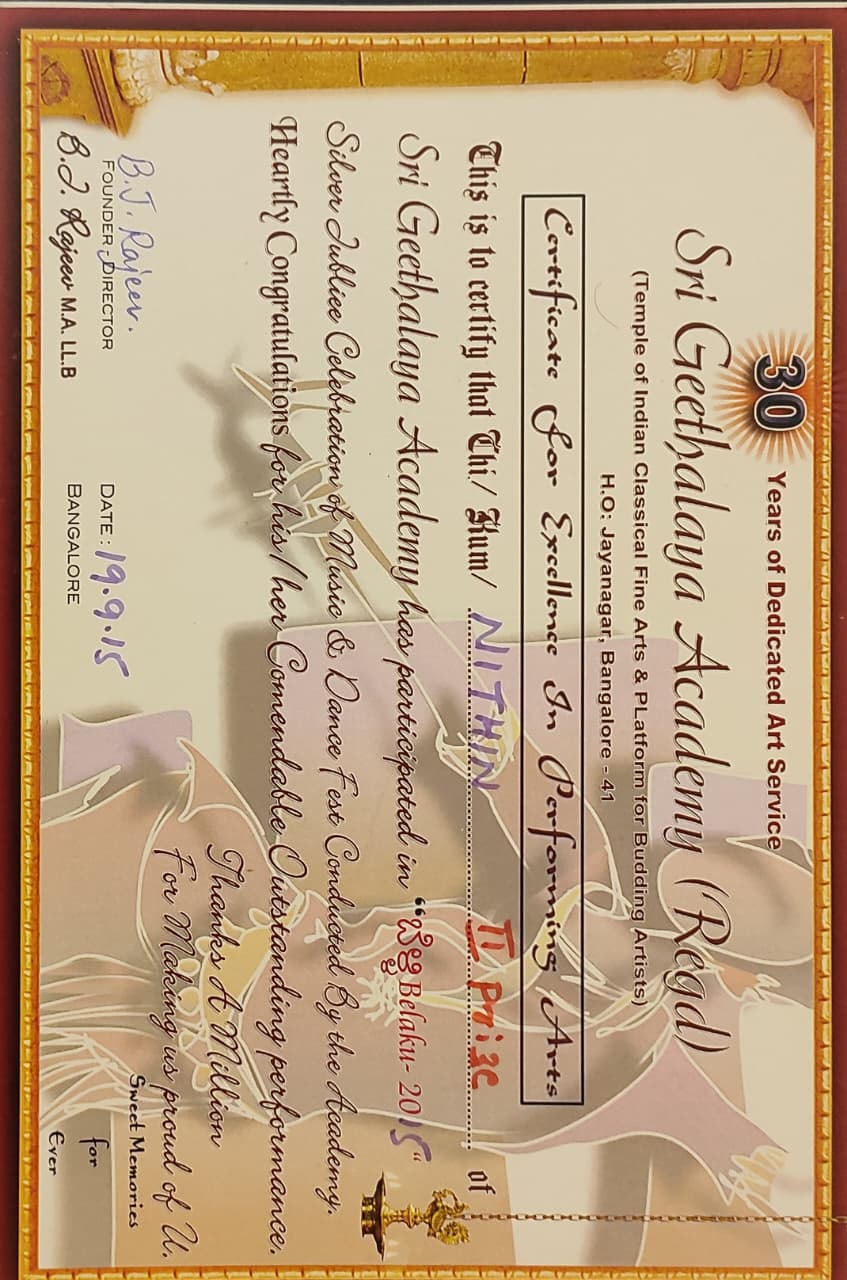 30 Years of Dedicated Art Service
Sri Geethalaya Academy (Regd)
(Temple of Indian Classical Fine Arts & PLatform for Budding Artists)
H.O: Jayanagar, Bangalore - 41
Certificate For Excellence In Performing Arts
This is to certify that Thi/ Kum/ NITHIN II Prize of
Sri Geethalaya Academy has participated in “ಬೆಳ್ಳಿ Belaku- 2015“
Silver Jubliee Celebration of Music & Dance Fest Conducted By the Academy.
Heartly Congratulations for his/her Comendable Outstanding performance.
Thanks A Million
For Making us proud of U.
Sweet Memories
for
Ever
B.J. Rajeev.
FOUNDER-DIRECTOR
B.J. Rajeev M.A. LL.B
DATE: 19.9.15
BANGALORE